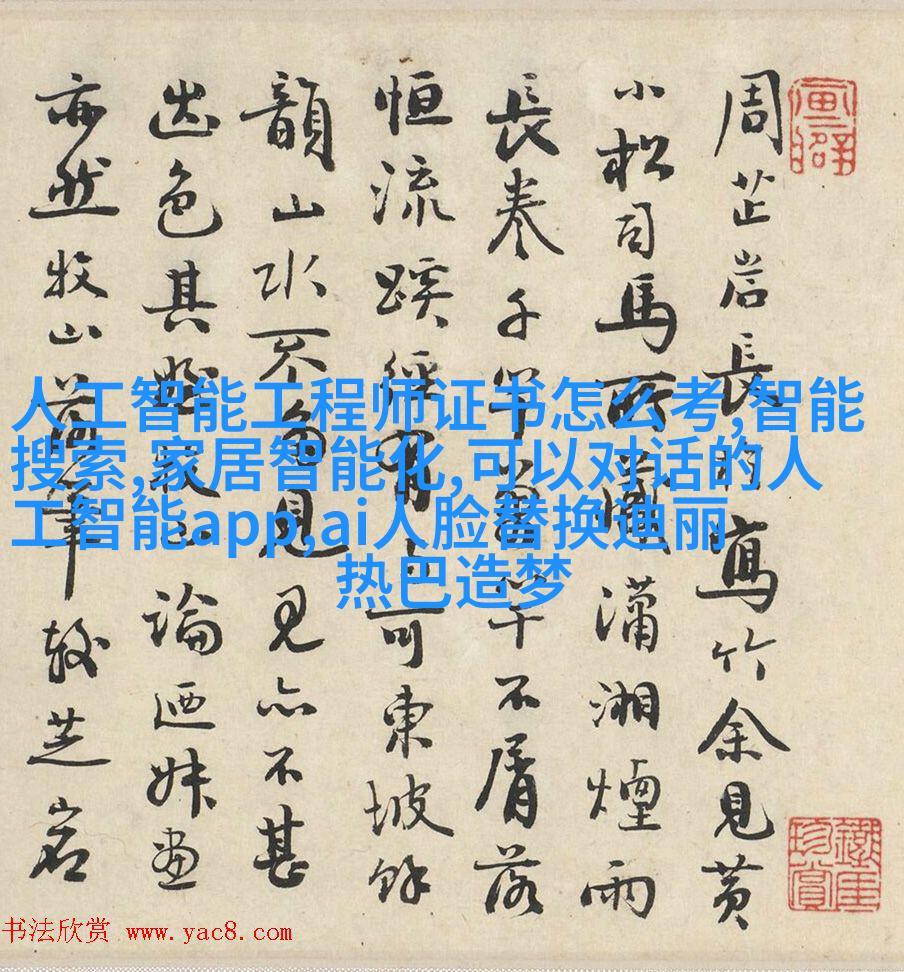 周芷岩長於寫竹余見黄
小松司馬所藏瀟湘煙雨
長卷千竿萬竿不屑落
恒流蹊徑可東坡餘
韻山水不多見見亦不甚
出色其論迺妹畫
亦然牧山較芝岩
人工智能工程师证书怎么考,智能
搜索,家居智能化,可以对话的人
工智能app,ai人脸替换迪丽
热巴造梦
书法欣赏 www.yac8.com